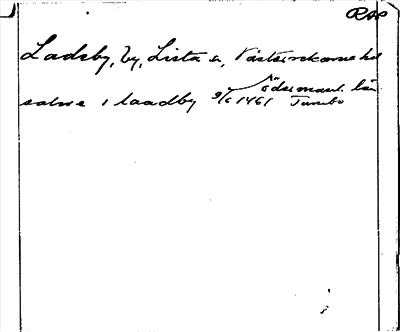 RAP
Ladsby, by, Lista sn, Västerrekarne hd
Södermanl. län
salwe i laadby 9/6 1461 Tumbo